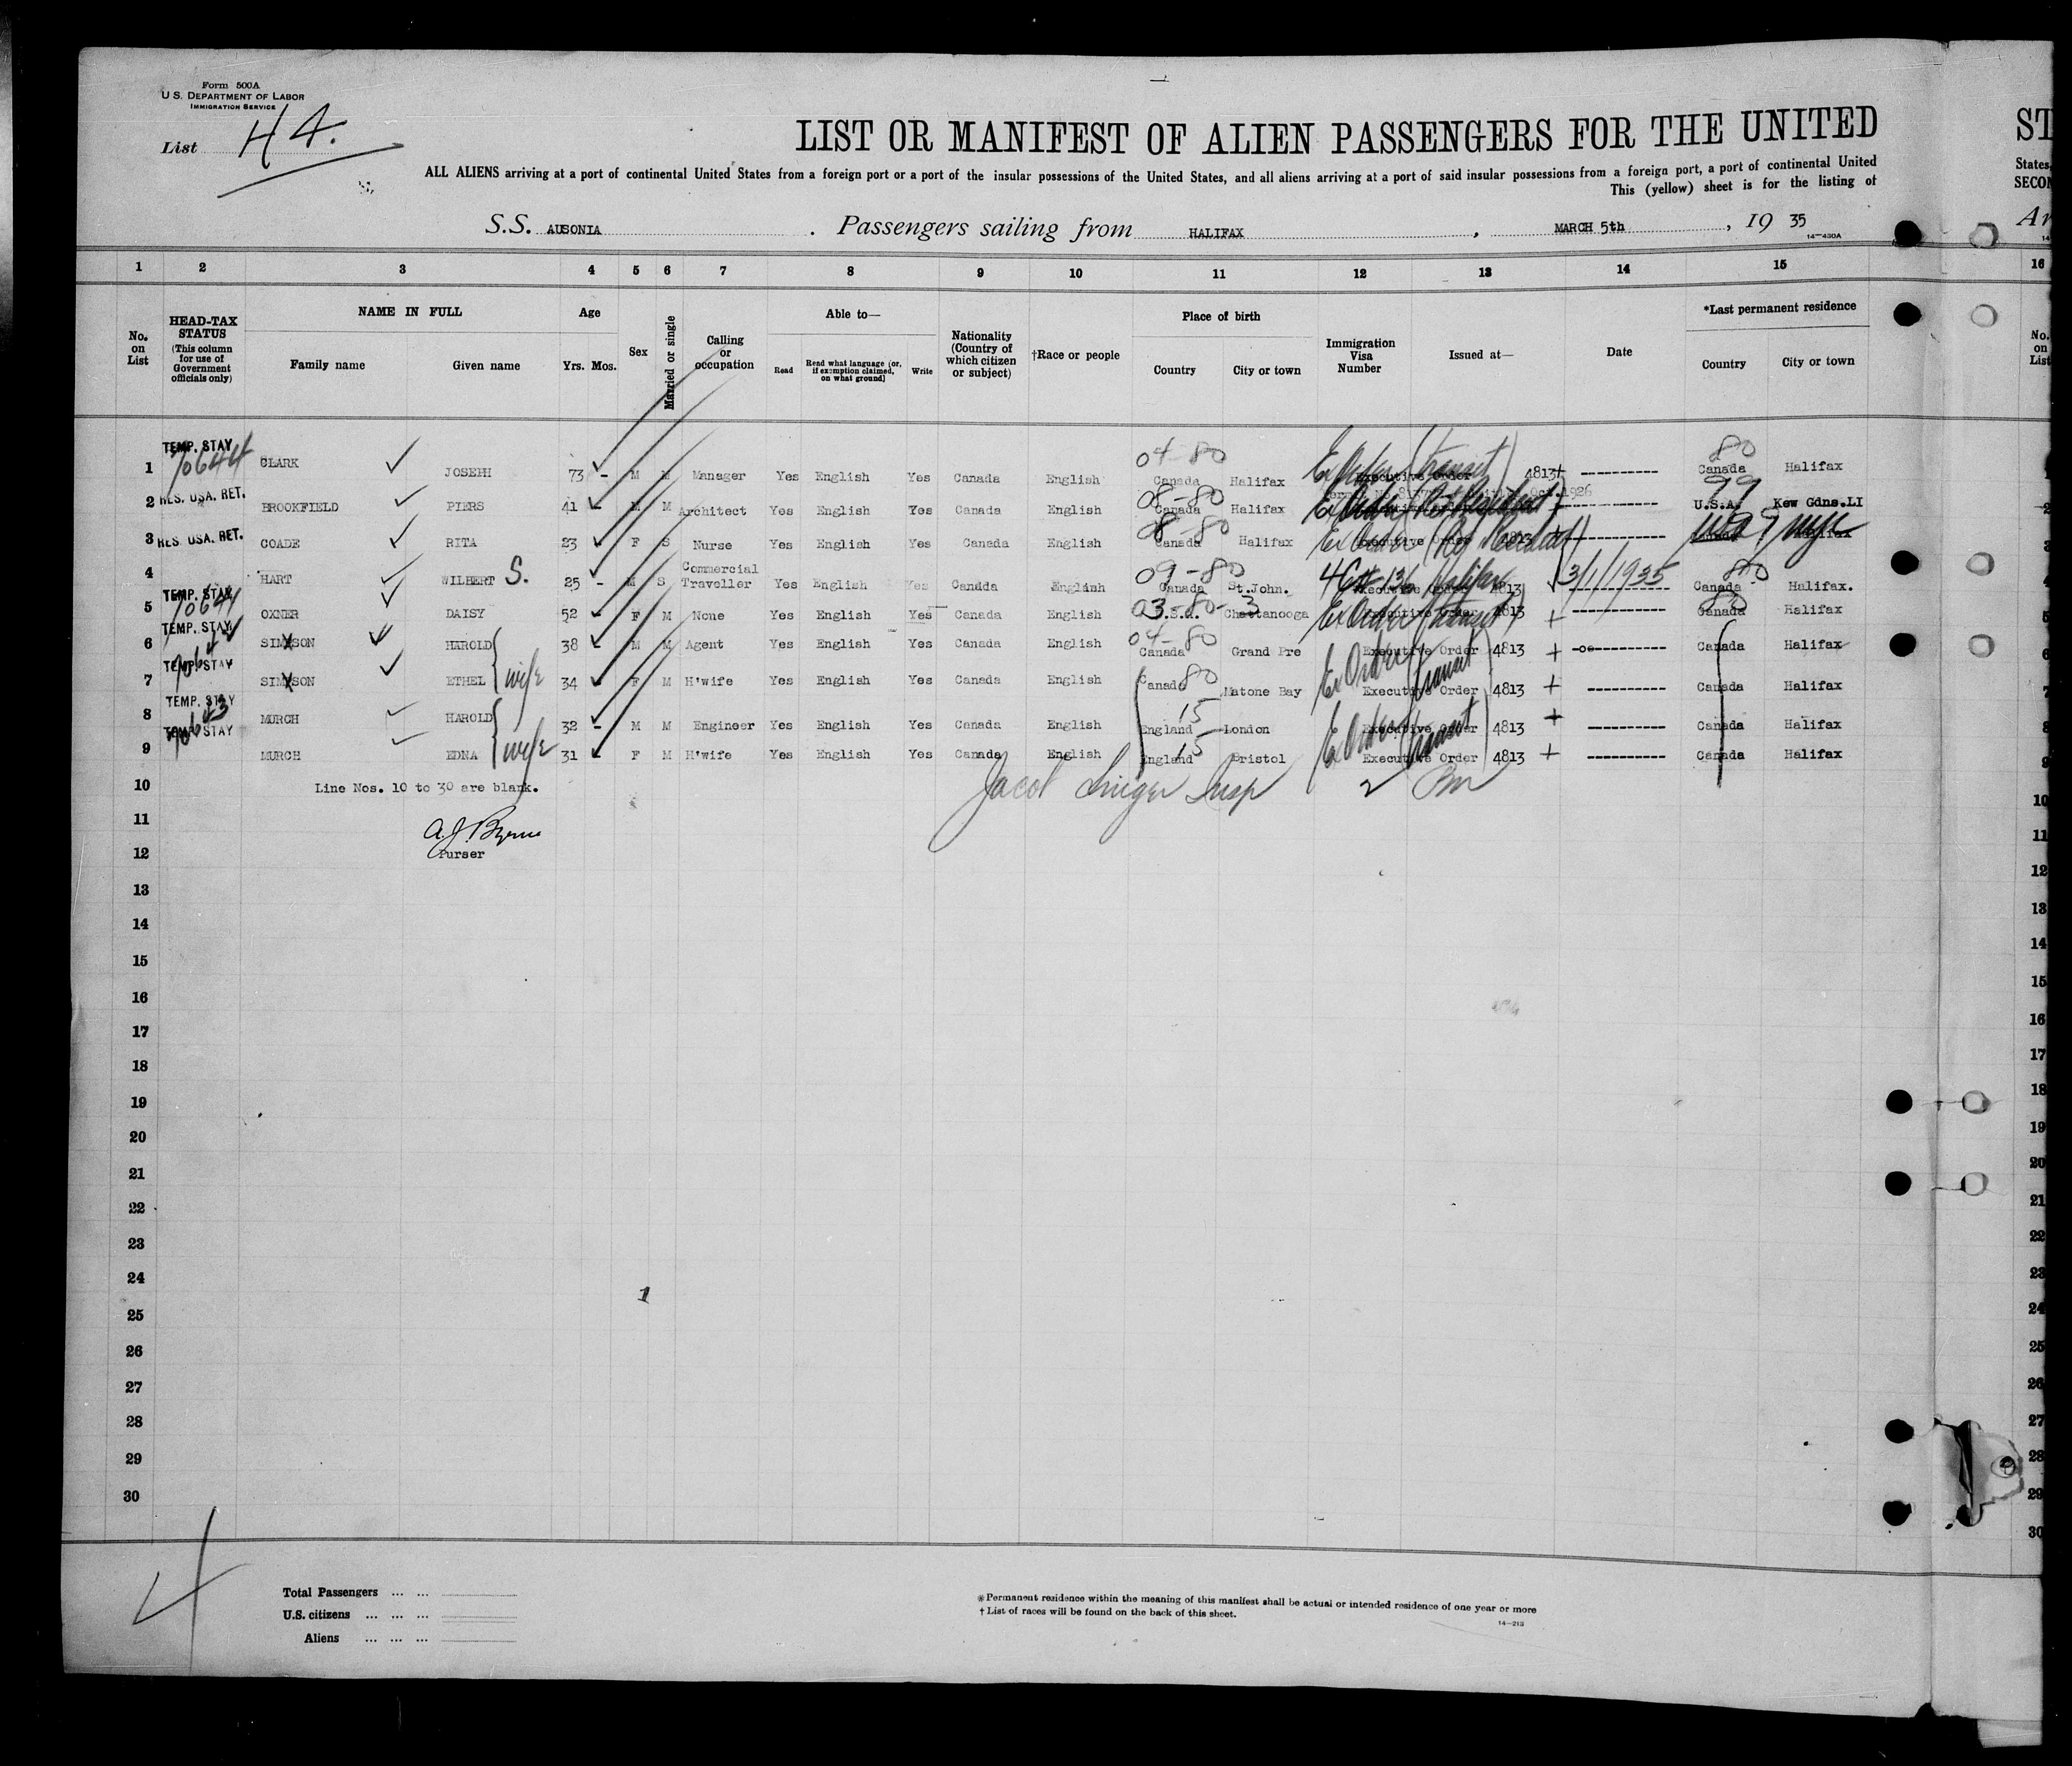 Form 500A
U.S. DEPARTMENT OF LABOR
IMMIGRATION SERVICE
List 44.
LIST OR MANIFEST OF ALIEN PASSENGERS FOR THE UNITED
ST
ALL ALIENS arriving at a port of continental United States from a foreign port or a port of the insular possessions of the United States, and all aliens arriving at a port of said insular possessions from a foreign port, a port of continental United
States,
This (yellow) sheet is for the listing of
SECON
S.S. AUSONIA . Passengers sailing from HALIFAX , MARCH 5th , 19 35
Ar
14—430A
1 2 3 4 5 6 7 8 9 10 11 12 13 14 15 16
No. on List
HEAD-TAX STATUS (This column for use of Government officials only)
NAME IN FULL
Family name Given name
Age
Yrs. Mos.
Sex
Married or single
Calling or occupation
Able to—
Read
Read what language (or, if exemption claimed, on what ground)
Write
Nationality (Country of which citizen or subject)
†Race or people
Place of birth
Country City or town
Immigration Visa Number
Issued at—
Date
*Last permanent residence
Country City or town
No. on List
1 TEMP. STAY 70644 CLARK JOSEPH 73 - M M Manager Yes English Yes Canada English 04-80 Canada Halifax Ex Order (transit) Executive Order 4813 + ----------- 80 Canada Halifax
2 RES. USA. RET. BROOKFIELD PIERS 41 M M Architect Yes English Yes Canada English 08-80 Canada Halifax ----------- 99 U.S.A. Kew Gdns.LI
3 RES. USA. RET. COADE RITA 23 F S Nurse Yes English Yes Canada English 08-80 Canada Halifax Ex Order Executive Order 4813 ----------- USA 99 NYC
4 HART WILBERT S. 25 - M S Commercial Traveller Yes English Yes Canada English 09-80 Canada St.John. Halifax Executive Order 4813 3/1/1935 80 Canada Halifax.
5 TEMP. STAY 70641 OXNER DAISY 52 - F M None Yes English Yes Canada English 03-80-3 U.S.A. Chattanooga Ex Order (transit) Executive Order 4813 + ----------- 80 Canada Halifax
6 TEMP. STAY SIMXSON HAROLD 38 M M Agent Yes English Yes Canada English 04-80 Canada Grand Pre Ex Order (transit) Executive Order 4813 + ----------- Canada Halifax
7 TEMP. STAY SIMXSON ETHEL wife 34 F M H'wife Yes English Yes Canada English Canada 80 Matone Bay Executive Order 4813 + ----------- Canada Halifax
8 TEMP. STAY MURCH HAROLD 32 - M M Engineer Yes English Yes Canada English 15 England London Ex Order (transit) Executive Order 4813 + ----------- Canada Halifax
9 TEMP. STAY MURCH EDNA wife 31 F M H'wife Yes English Yes Canada English 15 England Bristol Executive Order 4813 + ----------- Canada Halifax
10 Line Nos. 10 to 30 are blank.
Jacob Insp
11 A.J. Byrne
12 Purser
13
14
15
16
17
18
19
20
21
22
23
24
25
26
27
28
29
30
Total Passengers ... ...
U.S. citizens ... ... ...
Aliens ... ... ...
* Permanent residence within the meaning of this manifest shall be actual or intended residence of one year or more
† List of races will be found on the back of this sheet.
14—213